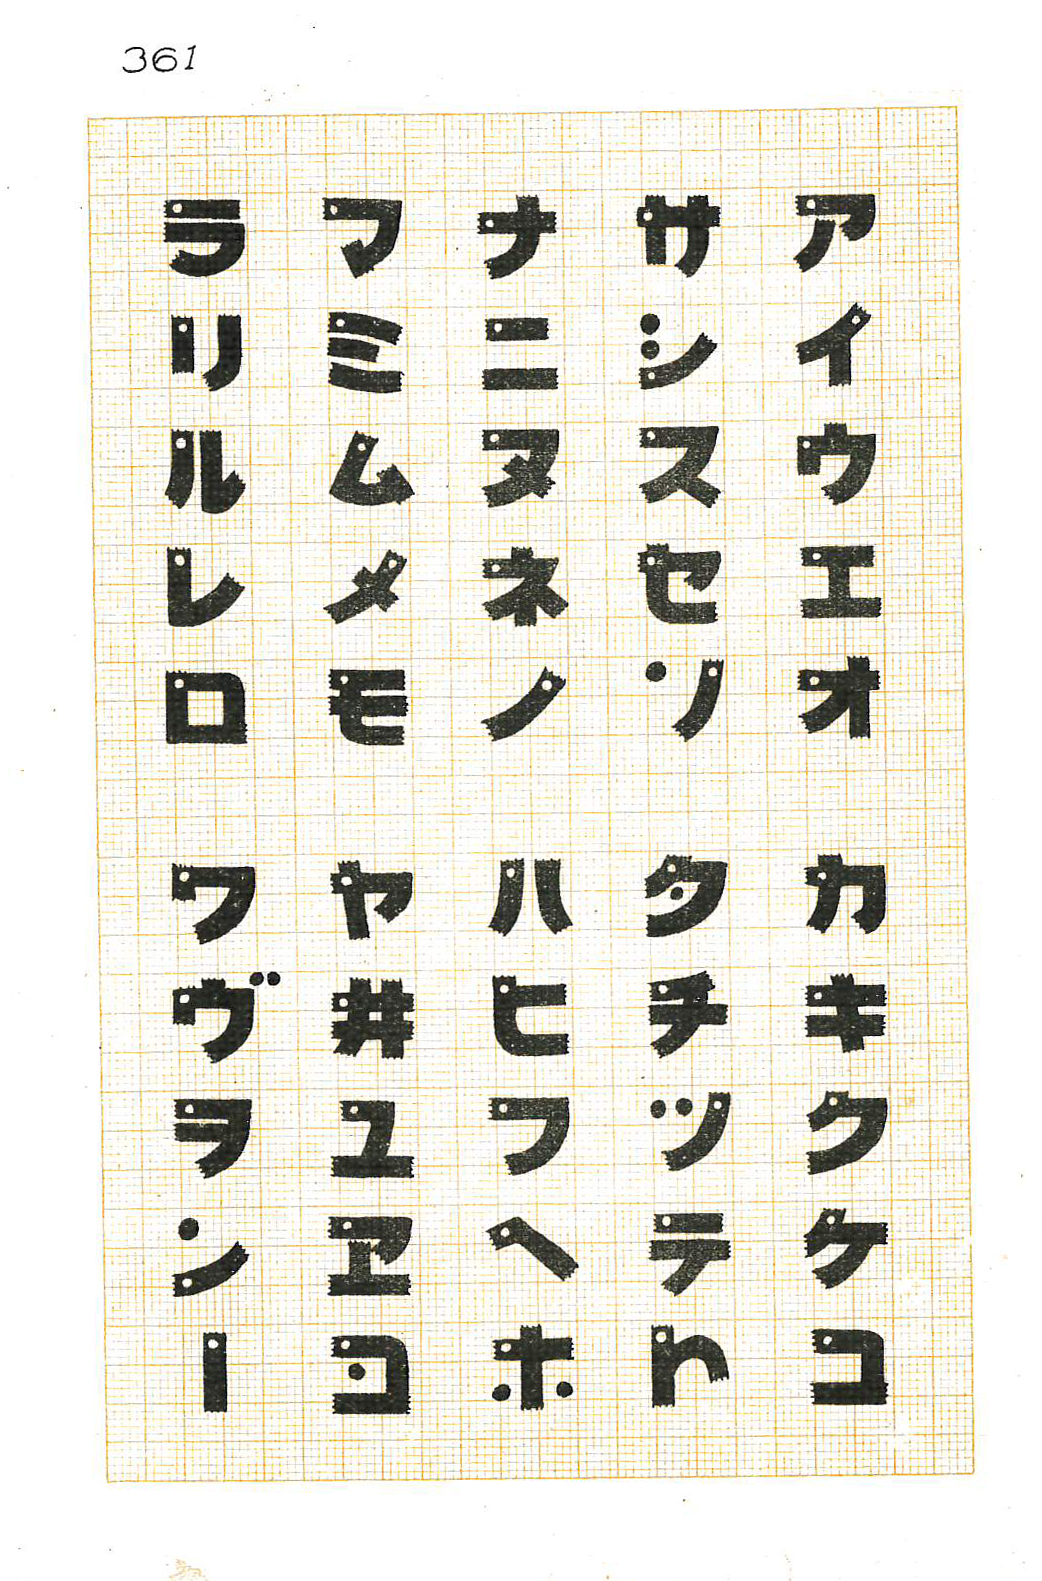 361
アイウエオ
カキクケコ
サシスセソ
タチツテト
ナニヌネノ
ハヒフヘホ
マミムメモ
ヤヰユヱヨ
ラリルレロ
ワヴヲンー